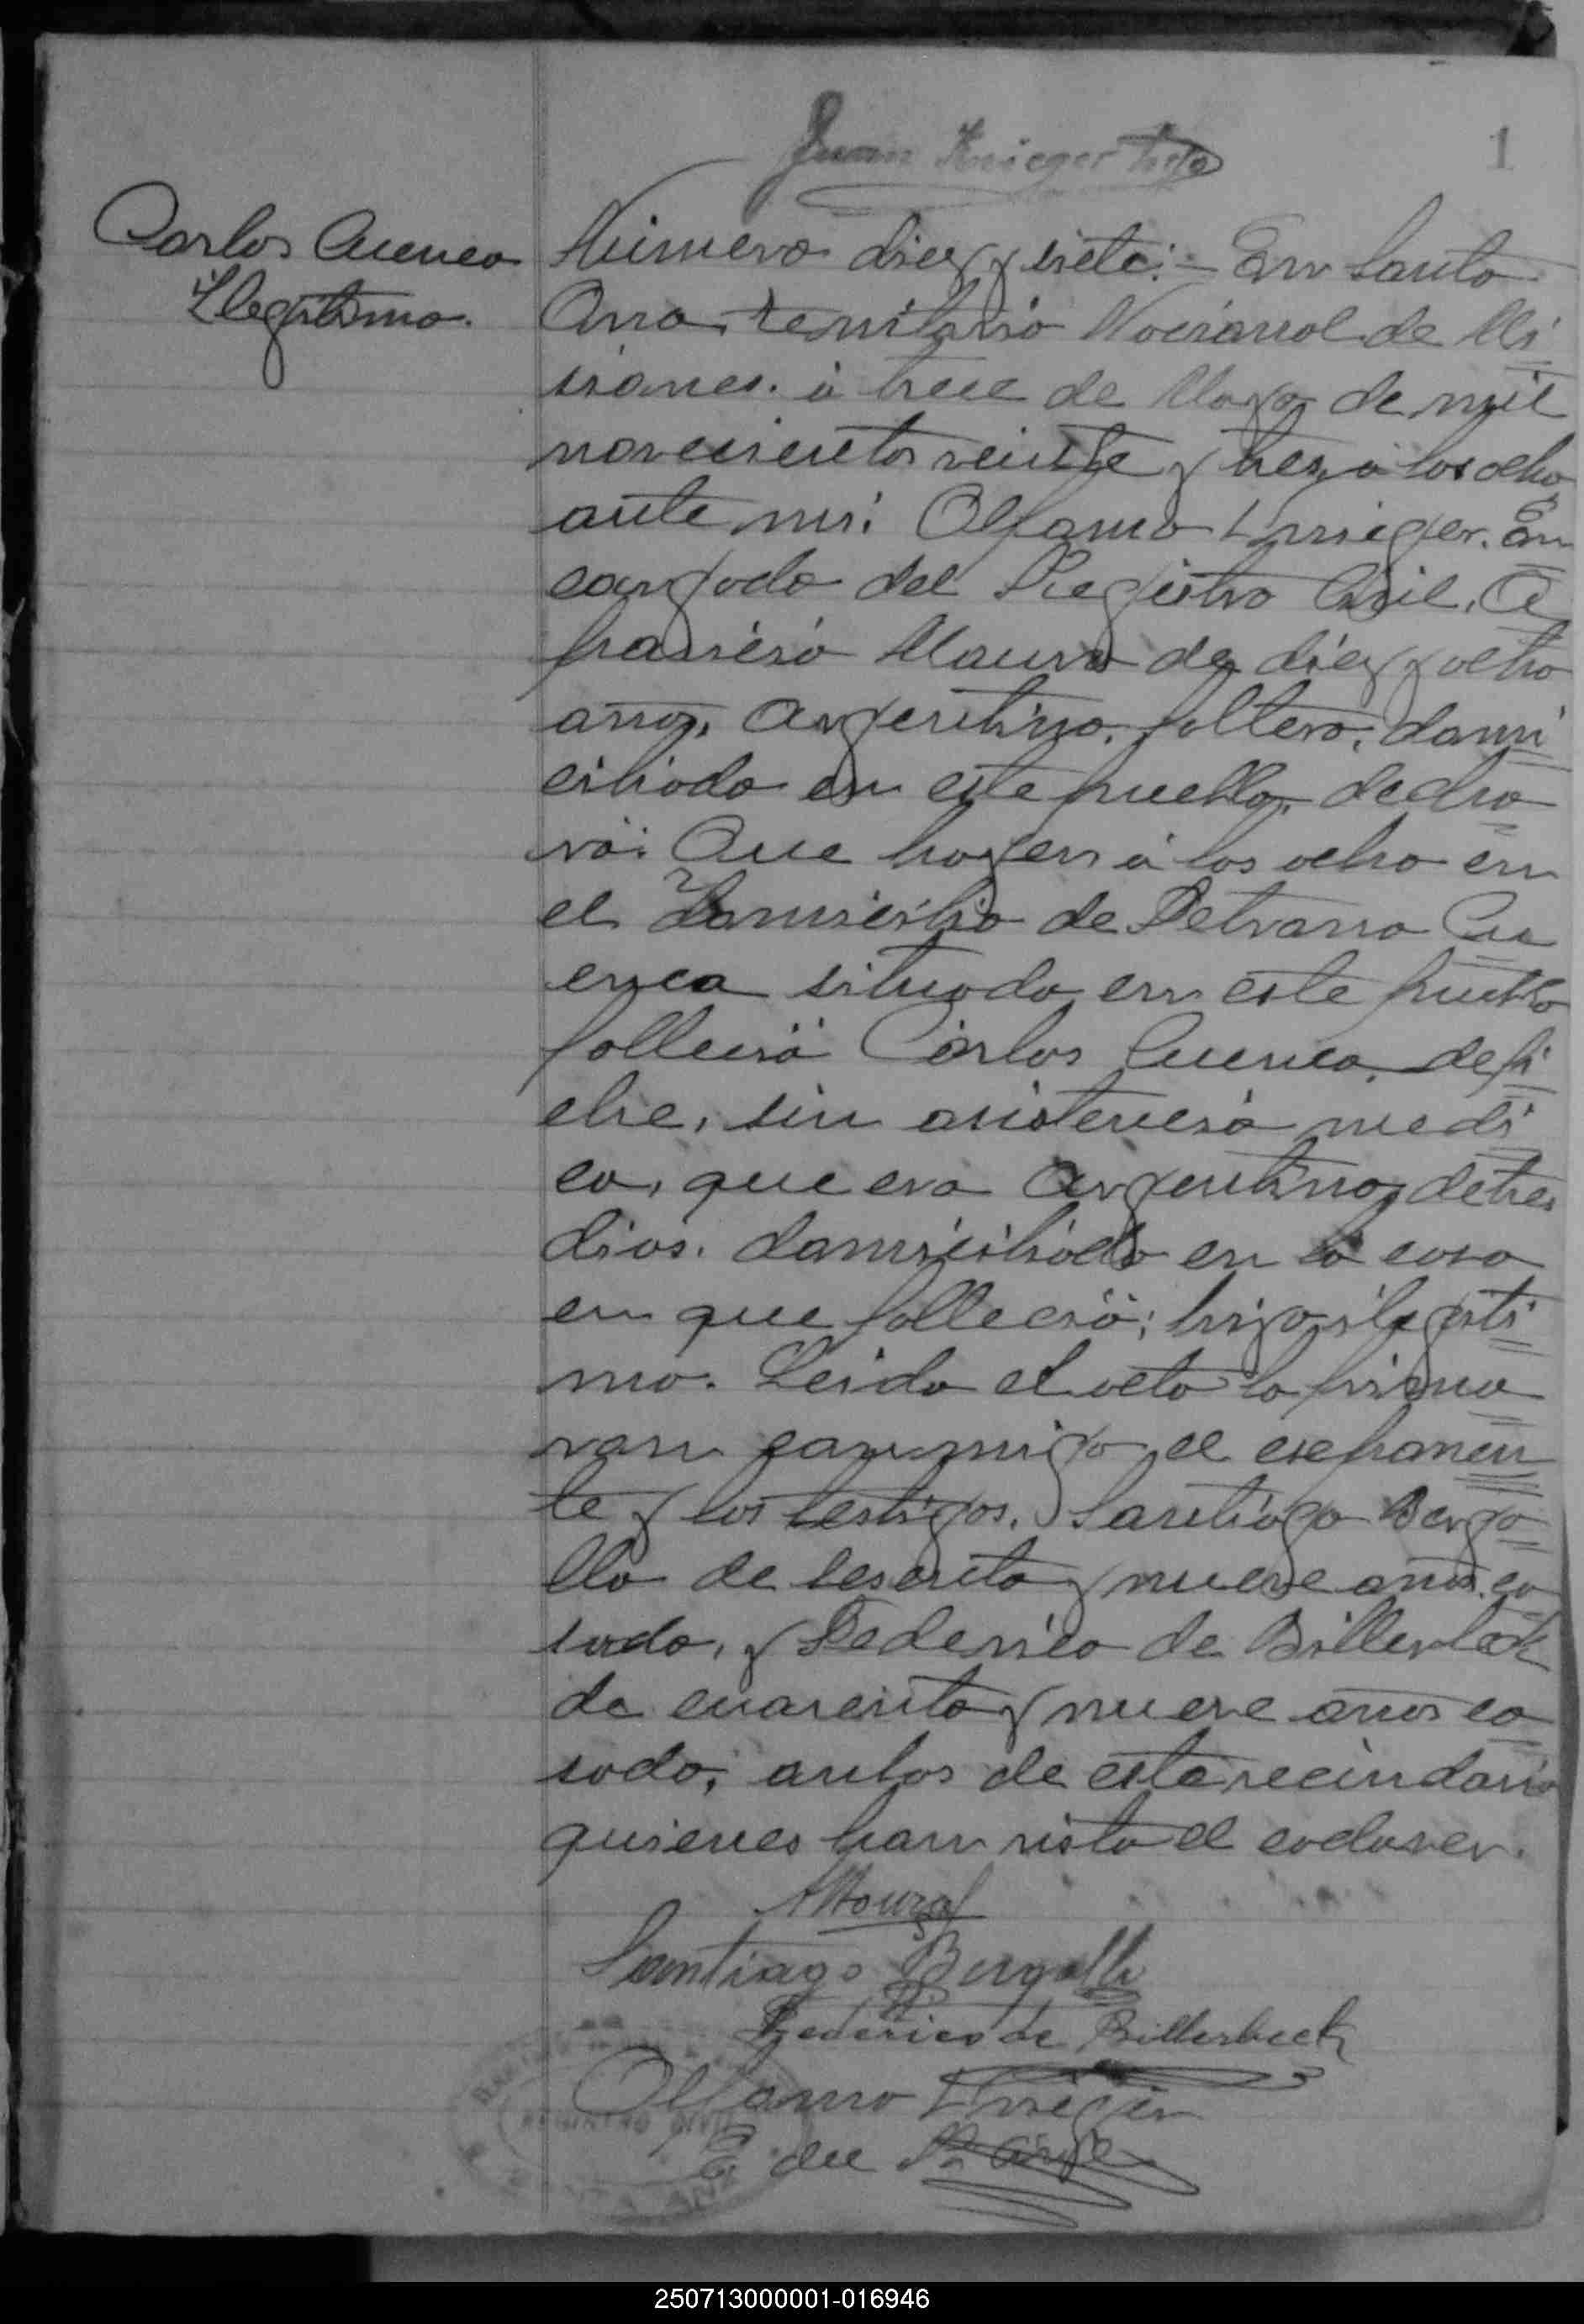 Juan Krieger hijo
1
Carlos Cuenca
Ilegitimo.
Número diez y siete:- En Santa
Ana, territorio Nacional de Mi
siones. á trece de Mayo de mil
novecientos veinte y tres, á las ocho,
ante mi: Olfanno Krieger. En
cargado del Registro Civil, A
Maura de diez y ocho
años, argentino, soltero, domi
ciliado en este pueblo, decla
ró: Que hoy á las ocho en
el domicilio de Petrona Cu
enca situado en este pueblo
falleció Carlos Cuenca, de fi
ebre, sin asistencia medi
ca, que era argentino, de tres
dias. domiciliado en la casa
en que falleció; hijo ilegiti
mo. Leida el acta la firma
ron conmigo, el exponen
te y los testigos, Santiago Berga
llo de sesenta y nueve años, ca
sado, y Federico de Billerbeck
de cuarenta y nueve años ca
sado, ambos de este vecindario
quienes han visto el cadaver.
AMoura
Santiago Bergallo
Federico de Billerbeck
Olfanno Krieger
E del R. Civil
REGISTRO CIVIL
SANTA ANA
250713000001-016946